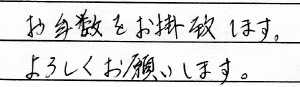 お手数をお掛致します。
よろしくお願いします。